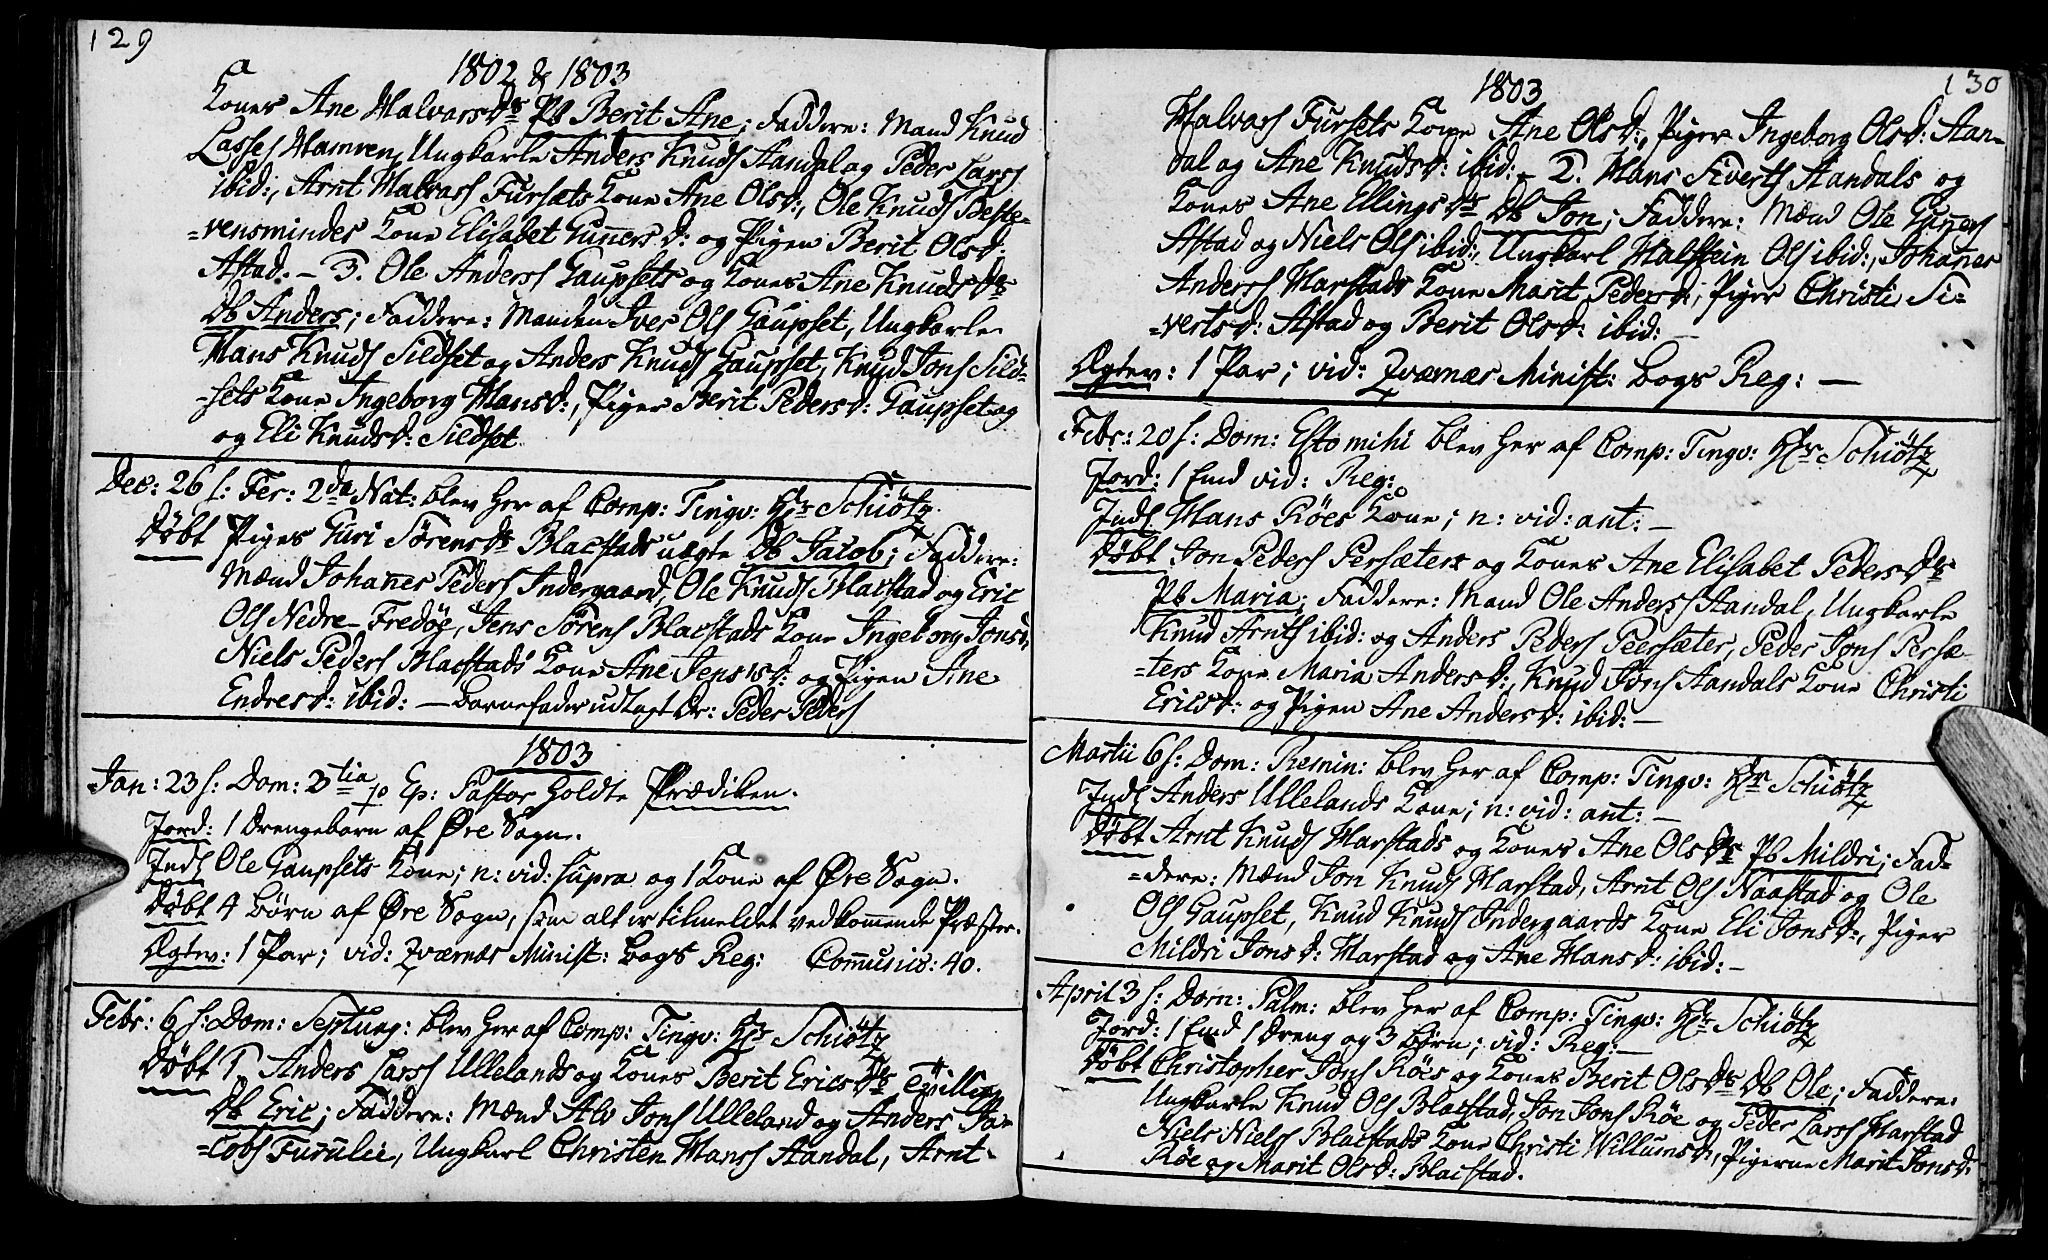 129
1802 & 1803
Kones Ane Halvarsdr Pb Berit Ane; Faddere: Mand Knud
Lasses Hamren, Ungkarle Anders Knuds Aandal og Peder Larss
ibid:, Arnt Halvars Fursæts Kone Ane Olsd:, Ole Knuds Beste-
=vensmindes Kone Elisabet Gunners d: og Pigen Berit Olsd:
Astad. - 3. Ole Anderss Gaupsets og Kones Ane Knudsdr
Db Anders; Faddere: Manden Iver Ols Gaupset, Ungkarle
Hans Knuds Sildset og Anders Knuds Gaupset, Knud Jons Sild-
-sets Kone Ingeborg Hansd:, Piger Berit Pedersd: Gaupset og
og Eli Knudsd: Sildset
Dec: 26 s: Fer: 2da Nat: blev her af Comp: Tingv: Hr Schiötz
Döbt Piges Guri Sörensdr Blacstads uægte Db Jacob; Faddere:
Mænd Johannes Peders Indergaard, Ole Knuds Blacstad og Eric
Ols Nedre-Fredöe, Jens Sörens Blacstads Kone Ingeborg Jonsd,
Niels Peders Blacstads Kone Ane Jensisd: og Pigen Ane
Endresd: ibid: - Barnefader udlagt Dr: Peder Peders
1803
Jan: 23 s: Dom: 3tia p Ep: Pastor holdte Prædiken.
Jord: 1 Drengebarn af Øre Sogn.
Indl Ole Gaupsets Kone; n: vid: supra og 1 Kone af Øre Sogn.
Döbt 4 Börn af Øre Sogn, som alt er tilmeldet vedkommende Præster.
Ægtev: 1 Par; vid: Qværnæs Minist: Bogs Reg: Communic: 40.
Febr: 6 s: Dom: Septuag: blev her af Comp: Tingv: Hr Schiötz
Döbt 1. Anders Larss Ullelands og Kones Berit Ericsdr Tvilling
Db Eric; Faddere: Mænd Alv Jons Ulleland og Anders Ja-
=cobs Furulie, Ungkarl Christen Hanss Aandal, Arnt
1803
130
Halvars Fursets Kone Ane Olsd:, Piger Ingeborg Olsd: Aan-
dal og Ane Knudsd: ibid: - 2. Hans Siverts Aandals og
Kones Ane Ellingsdr Db Jon; Faddere: Mænd Ole Gunners
Astad og Niels Ols ibid:, Ungkarl Halstein Ols ibid:, Johanes
Anderss Harstads Kone Marit Pedersd:, Piger Christi Si-
=vertsd: Astad og Berit Olsd: ibid: -
Ægtev: 1 Par; vid: Qværnæs Minist: Bogs Reg: -
Febr: 20 s: Dom: Esto mihi blev her af Comp: Tingv: Hr Schiötz
Jord: 1 Emd vid: Reg:
Indl Hans Röes Kone; n: vid: ant: -
Döbt Jon Peders Persæters og Kones Ane Elisabet Pedersdr
Pb Maria; Faddere: Mand Ole Anderss Aandal, Ungkarle
Knud Arnts ibid: og Anders Peders Peersæter, Peder Jons Persæ-
=ters Kone Maria Andersd:, Knud Jons Aandals Kone Christi
Ericsd: og Pigen Ane Andersd: ibid: -
Martii 6 s: Dom: Remin: blev her af Comp: Tingv: Hr Schiötz
Indl Anders Ullelands Kone; n: vid: ant: -
Döbt Arnt Knuds Harstads og Kones Ane Olsdr Pb Mildri; Fad-
=dere: Mænd Jon Knuds Harstad, Arnt Ols Naastad og Ole
Ols Gaupset, Knud Knuds Indergaards Kone Eli Jonsd:, Piger
Mildri Jonsd: Harstad og Ane Hansd: ibid: -
April 3 s: Dom: Palm: blev her af Comp: Tingv: Hr Schiötz
Jord: 1 Emd 1 Dreng og 3 Börn; vid: Reg: -
Döbt Christopher Jons Röes og Kones Berit Olsdr Db Ole; Faddere:
Ungkarle Knud Ols Blacstad, Jon Jons Röe og Peder Larss Harstad
Niels Niels Blacstads Kone Christi Willumsd:, Pigerne Marit Jonsd:
Röe og Marit Olsd: Blacstad.